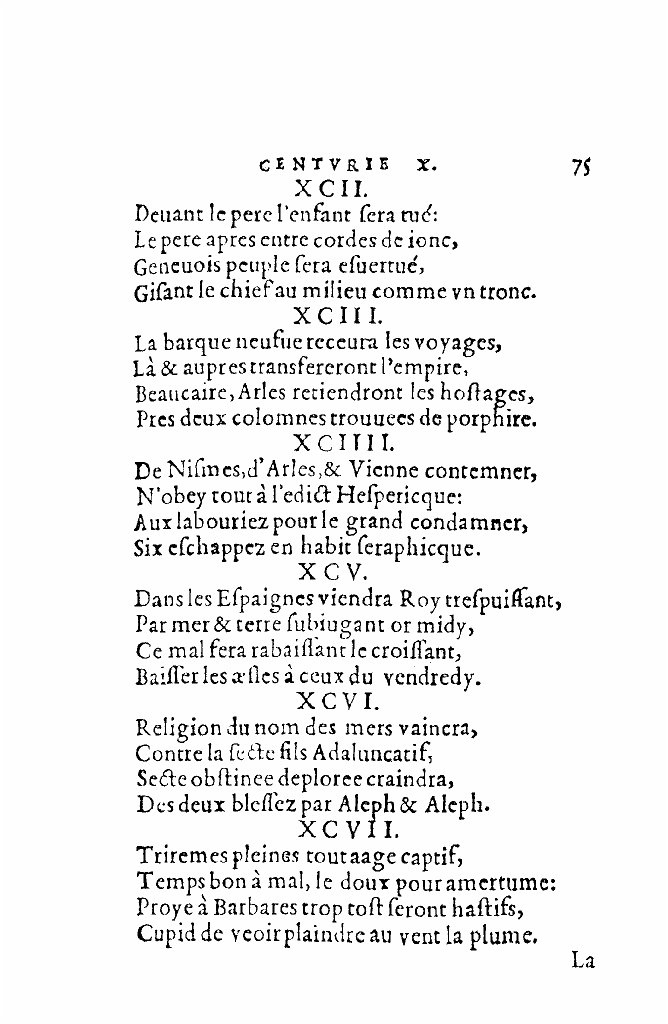 CENTVRIE X. 75
XCII.
Deuant le pere l'enfant ſera tué:
Le pere apres entre cordes de ionc,
Geneuois peuple ſera eſuertué,
Giſant le chief au milieu comme vn tronc.
XCIII.
La barque neufue receura les voyages,
Là & aupres transfereront l'empire,
Beaucaire, Arles retiendront les hoſtages,
Pres deux colomnes trouuees de porphire.
XCIIII.
De Niſmes, d'Arles, & Vienne contemner,
N'obey tout à l'edict Heſpericque:
Aux labouriez pour le grand condamner,
Six eſchappez en habit ſeraphicque.
XCV.
Dans les Eſpaignes viendra Roy treſpuiſſant,
Par mer & terre ſubiugant or midy,
Ce mal fera rabaiſſant le croiſſant,
Baiſſer les æſles à ceux du vendredy.
XCVI.
Religion du nom des mers vaincra,
Contre la ſecte fils Adaluncatif,
Secte obſtinee deploree craindra,
Des deux bleſſez par Aleph & Aleph.
XCVII.
Triremes pleines tout aage captif,
Temps bon à mal, le doux pour amertume:
Proye à Barbares trop toſt ſeront haſtifs,
Cupid de veoir plaindre au vent la plume.
La